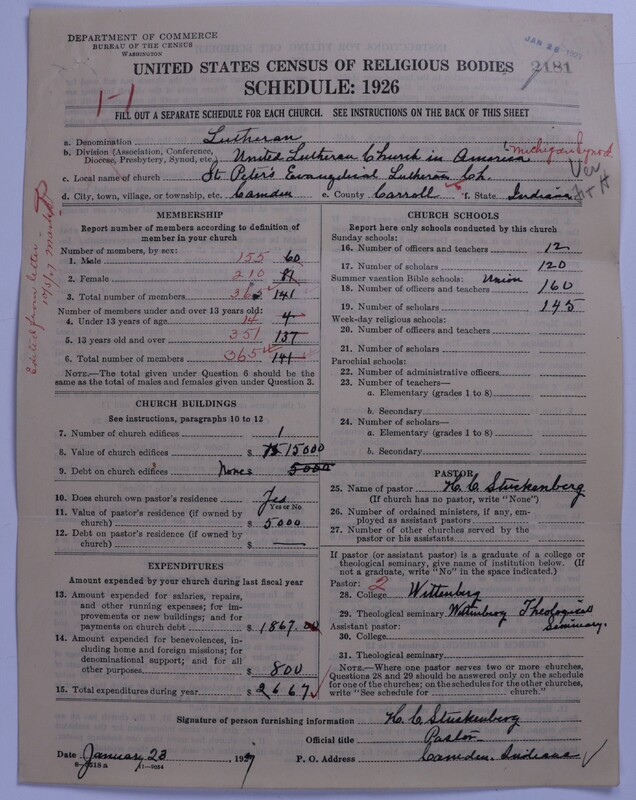 DEPARTMENT OF COMMERCE
BUREAU OF THE CENSUS
WASHINGTON
JAN 26 1927
UNITED STATES CENSUS OF RELIGIOUS BODIES
2181
SCHEDULE: 1926
1-1
FILL OUT A SEPARATE SCHEDULE FOR EACH CHURCH. SEE INSTRUCTIONS ON THE BACK OF THIS SHEET
a. Denomination Lutheran
b. Division (Association, Conference, Diocese, Presbytery, Synod, etc.) United Lutheran Church in America (Michigan Synod
Ver
c. Local name of church St Peter's Evangelical Lutheran Ch.
d. City, town, village, or township, etc. Camden e. County Carroll f. State Indiana
MEMBERSHIP
Report number of members according to definition of member in your church
Number of members, by sex:
1. Male 155 60
2. Female 210 81
3. Total number of members 365 141
Number of members under and over 13 years old:
4. Under 13 years of age 14 4
5. 13 years old and over 351 137
6. Total number of members 365 141
NOTE.—The total given under Question 6 should be the same as the total of males and females given under Question 3.
CHURCH BUILDINGS
See instructions, paragraphs 10 to 12
7. Number of church edifices 1
8. Value of church edifices $ 15000
9. Debt on church edifices None 5000
10. Does church own pastor's residence Yes
Yes or No
11. Value of pastor's residence (if owned by church) $ 5000
12. Debt on pastor's residence (if owned by church) $ —
EXPENDITURES
Amount expended by your church during last fiscal year
13. Amount expended for salaries, repairs, and other running expenses; for improvements or new buildings; and for payments on church debt $ 1867.00
14. Amount expended for benevolences, including home and foreign missions; for denominational support; and for all other purposes $ 800
15. Total expenditures during year $ 2667
CHURCH SCHOOLS
Report here only schools conducted by this church
Sunday schools:
16. Number of officers and teachers 12
17. Number of scholars 120
Summer vacation Bible schools: Union
18. Number of officers and teachers 160
19. Number of scholars 145
Week-day religious schools:
20. Number of officers and teachers
21. Number of scholars
Parochial schools:
22. Number of administrative officers
23. Number of teachers—
a. Elementary (grades 1 to 8)
b. Secondary
24. Number of scholars—
a. Elementary (grades 1 to 8)
b. Secondary
PASTOR
25. Name of pastor H. C. Stuckenberg
(If church has no pastor, write "None")
26. Number of ordained ministers, if any, employed as assistant pastors
27. Number of other churches served by the pastor or his assistants
If pastor (or assistant pastor) is a graduate of a college or theological seminary, give name of institution below. (If not a graduate, write "No" in the space indicated.)
Pastor: 2
28. College Wittenberg
29. Theological seminary Wittenberg Theological Seminary.
Assistant pastor:
30. College
31. Theological seminary
NOTE.—Where one pastor serves two or more churches, Questions 28 and 29 should be answered only on the schedule for one of the churches; on the schedules for the other churches, write "See schedule for church."
Signature of person furnishing information H. C. Stuckenberg
Official title Pastor
Date January 23, 1927 P. O. Address Camden, Indiana
8-5218 a 11-9054